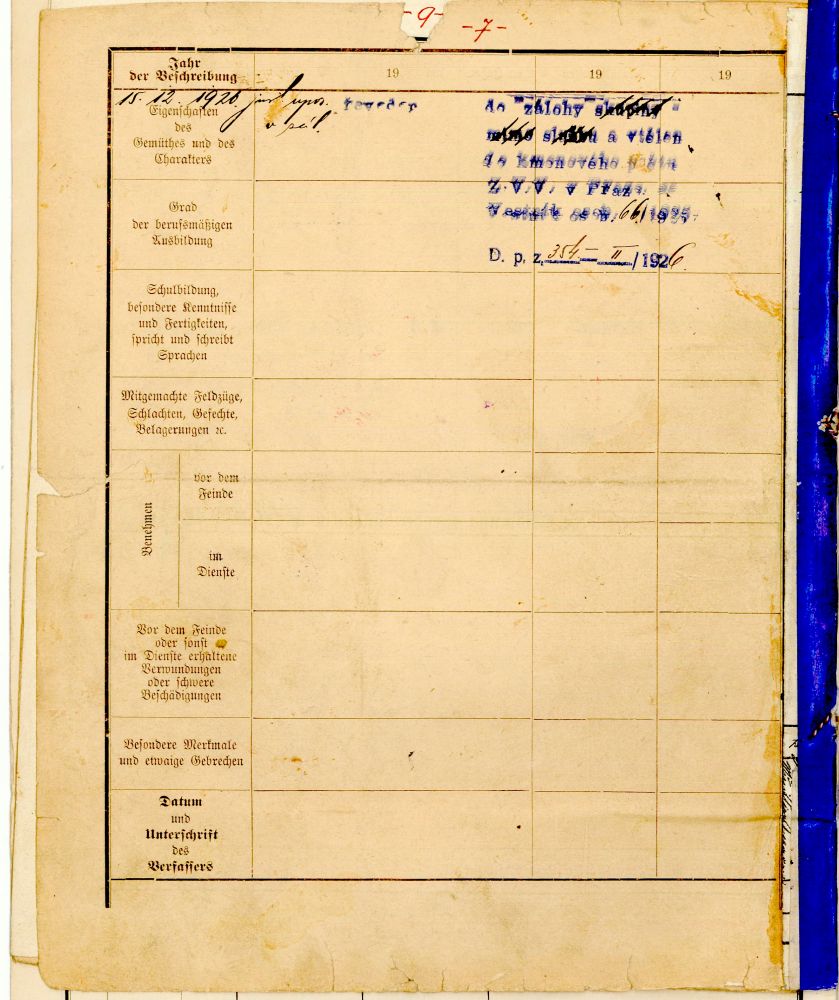 -9-
-7-
Jahr
der Beschreibung
19
19
19
15. 12. 1920.
do zálohy skupiny
mimo službu a vtělen
do kmenového počtu
Z.V.V. v Praze
Věstník osob. 66/1925.
D. p. z. 354 - II /1926.
Eigenschaften
des
Gemüthes und des
Charakters
Grad
der berufsmäßigen
Ausbildung
Schulbildung,
besondere Kenntnisse
und Fertigkeiten,
spricht und schreibt
Sprachen
Mitgemachte Feldzüge,
Schlachten, Gefechte,
Belagerungen ꝛc.
Benehmen
vor dem
Feinde
im
Dienste
Vor dem Feinde
oder sonst
im Dienste erhaltene
Verwundungen
oder schwere
Beschädigungen
Besondere Merkmale
und etwaige Gebrechen
Datum
und
Unterschrift
des
Verfassers